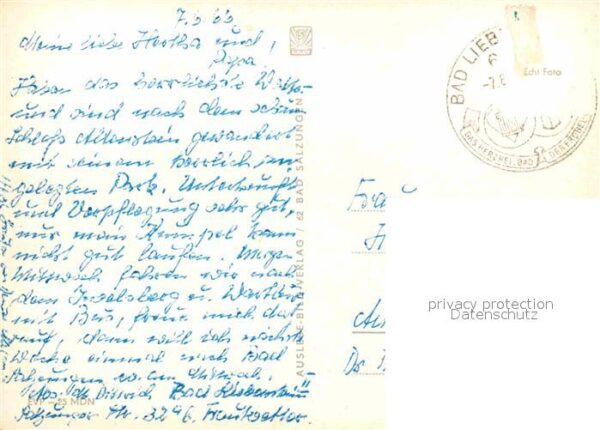 7.6.66
Meine liebe Hertha und
Papa.
Haben das herrlichste Wetter
und sind nach dem schönen
Schloß Altenstein gewandert
mit seinem herrlich an-
gelegten Park. Unterkunft
und Verpflegung sehr gut,
nur mein Kumpel kann
nicht gut laufen. Morgen
Mittwoch fahren wir nach
dem Inselsberg u. Wartburg
mit Bus, freue mich da-
rauf, dann will ich nächste
Woche einmal nach Bad
Salzungen
Bad Liebenstein
Salzunger Str.
EVP -,25 MDN
AUSLESE-BILD-VERLAG / 62 BAD SALZUNGEN
BAD LIEB
-7.6
DAS HERZHEILBAD DER
Echt Foto
Frau
H
Dr.
privacy protection
Datenschutz